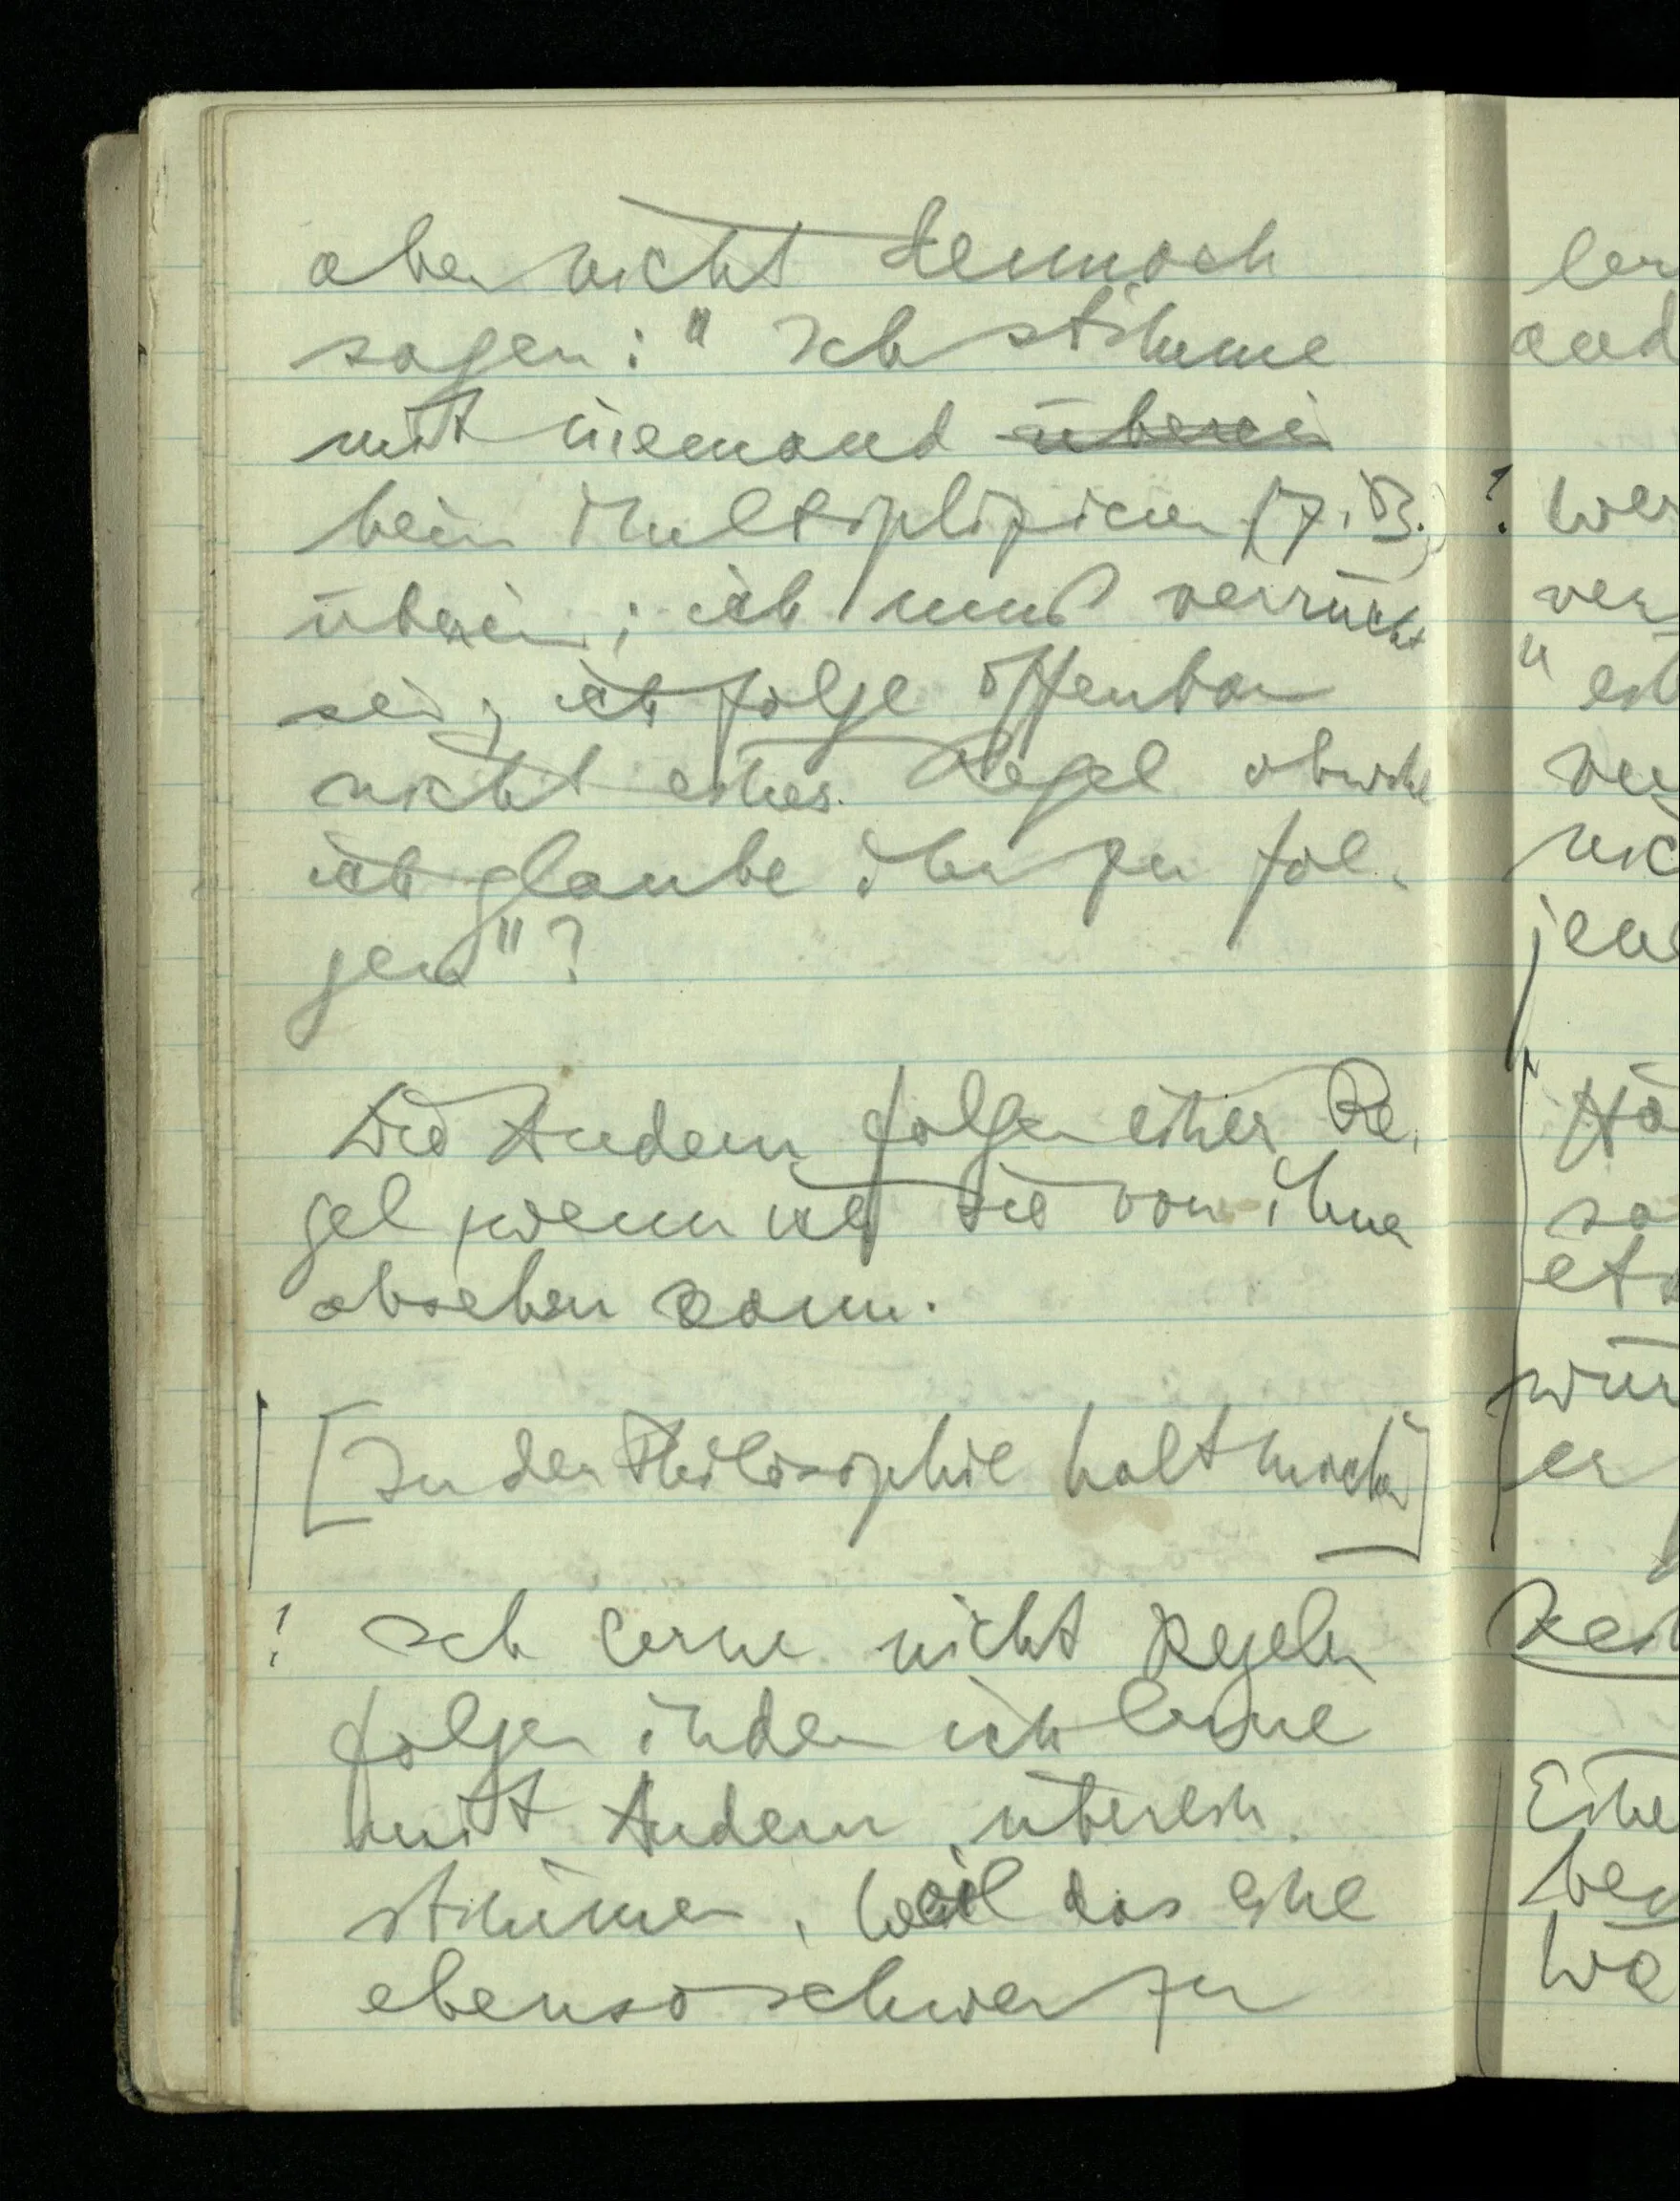 aber nicht dennoch
sagen: " Ich stimme
mit niemand überei
beim Multiplizieren (z.B.)
überein; ich muß verrückt
sein; ich folge offenbar
nicht einer Regel obwohl
ich glaube ihr zu fol-
gen"?
Die Andern folgen einer Re-
gel, wenn ich sie von ihnen
absehen kann.
[In der Philosophie halt machen]
! Ich lerne nicht Regeln
folgen indem ich lerne
mit Andern überein-
stimmen, weil das eine
ebenso schwer zu
ler
and
? Wer
ver
"
nic
jene
Hä
sa
etw
wür
er
Eine
Wa